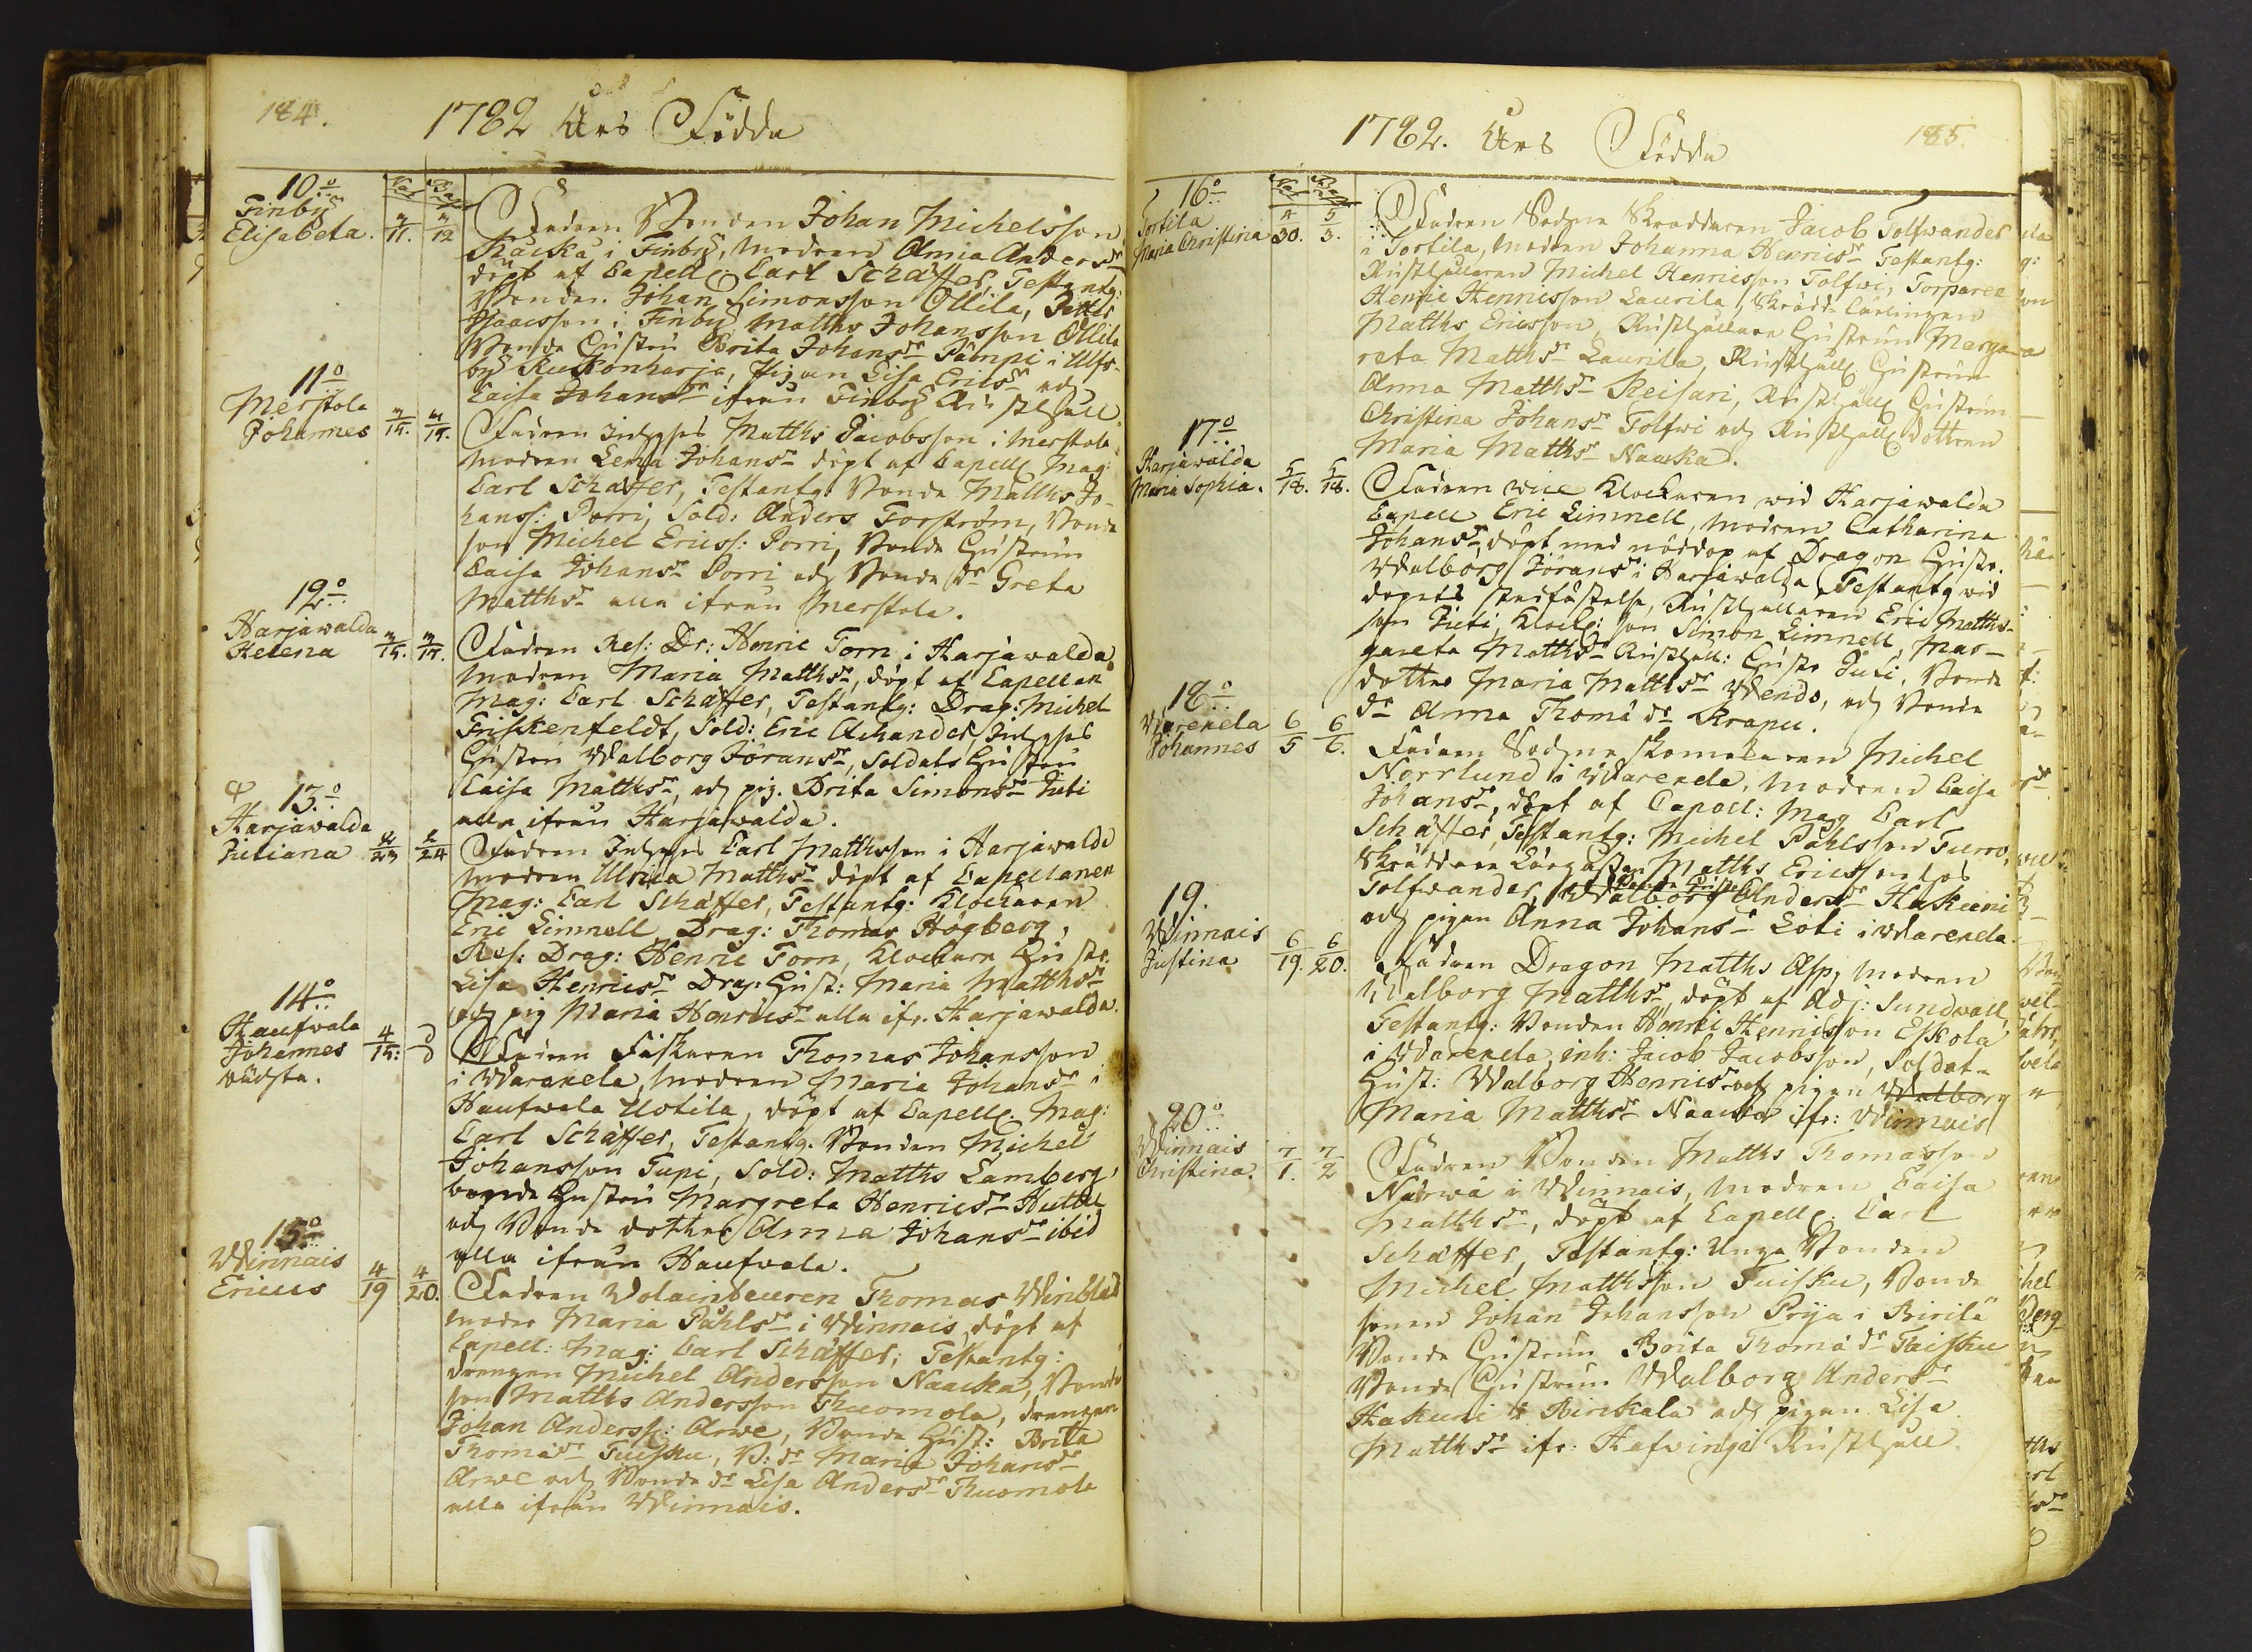 184.
1782 Års Födda
10:o
Finby
Elisabeta. 3/11. 3/12
Fadren Bonden Johan Michelsson
i Finby, modren Anna Andersdr
döpt af Capell: Carl Schäffer, Testantg:
Bonden Johan Simonsson Ollila,
Isaacsson i Finby Matths Johansson Ollila
Bonde Hustru Brita Johansdr Pämpi i Ulfs-
by Kukonharja, Pigan Lisa Ericsdr och
Caisa Johansdr ifrån Finby Rusthåll
11:o
Merstola
Johannes 3/14. 3/14.
Fadren Inhyses Matths Jacobsson i Merstola
modren Lena Johansdr döpt af Capell: Mag:
Carl Schäffer, Testantg: Bonde Matths Jo-
hanss: Porri, Sold: Anders Forström, Bonde
son Michel Ericss: Porri, Bonde Hustrun
Caisa Johansdr Porri och Bonde dr Greta
Matthsdr alla ifrån Merstola.
12:o
Harjawalda
Helena 3/15. 3/17.
Fadren Res: Dr: Henric Torn i Harjawalda
modren Maria Matthsdr, döpt af Capellan
Mag: Carl Schäffer, Testantg: Drag: Michel
Friskenfeldt, Sold: Eric Achander, Inhyses
Hustru Walborg Jöransdr, Soldats Hustru
Caisa Matthsdr, och pig. Brita Simonsdr Juti
alla ifrån Harjawalda.
13:o
Harjawalda
Juliana 2/23 2/24
Fadren Inhyses Carl Matthsson i Harjawalda
modren Ulrica Matthsdr döpt af Capellanen
Mag: Carl Schäffer, Testantg: Klockaren
Eric Limnell, Drag: Thomas Högberg,
Res: Drag: Henric Torn, Klockare Hustr.
Lisa Henricsdr Drag: Hust: Maria Matthsdr
och pig Maria Henricsdr alla ifr. Harjawalda.
14:o
Haufwala
Johannes
oächta. 4/15:
Fadren Fiskaren Thomas Johansson
i Warekela, modren Maria Johansdr i
Haufwala Uotila, döpt af Capell: Mag:
Carl Schäffer, Testantg. Bonden Michel
Johansson Tupi, Sold: Matths Lamberg,
bonde Hustru Margreta Henricsdr Huttu
och Bonde dotter Anna Johansdr ibid
alla ifrån Haufwala.
15:o
Winnais
Ericus 4/19 4/20.
Fadren Wolainbeuren Thomas Winblad
moder Maria Påhlsdr i Winnais, döpt af
Capell: Mag: Carl Schäffer, Testantg:
drengen Michel Andersson Naacka, Bonde
son Matths Andersson Thuomola, drengen
Johan Anderss: Arwe, Bonde Hust: Brita
Thomædr Tuisku, B: dr Maria Johansdr
Arwe och Bonde dr Lisa Andersdr Thuomola
alla ifrån Winnais.
1782. Års Födda
185.
16:o
Tortila
Maria Christina 4/30. 5/3.
Fadren Sochne Skraddaren Jacob Tolfwander
i Tortila, modren Johanna Henricsdr Testantg:
Rusthållaren Michel Henricsson Tolfwi, Torparen
Henric Henricsson Laurila, Skrädd. Lärlingen
Matths Ericsson, Rusthållare Hustrun Marga-
reta Matthsdr Laurila, Rusthåll: Hustrun
Anna Matthsdr Keisari, Rusthåll: Hustrun
Christina Johansdr Tolfwi och Rusthåll: dottren
Maria Matthsdr Naacka.
17:o
Harjawalda
Maria Sophia. 5/18. 5/18.
Fadren vice Klockaren wid Harjawalda
Capell Eric Limnell, modren Catharina
Johansdr, döpt med nöddop af Dragon Hustr.
Walborg Jöransdr i Harjawalda, Testantg wid
dopets stadfästelse, Rusthållaren Eric Matths-
son Juti, Klock: son Simon Limnell, Mar-
gareta Matthsdr Rusthåll: Hustr Juti, Bonde
dotter Maria Matthsdr Wendo, och Bonde
dr Anna Thomædr Krapu.
18:o
Warekela
Johannes 6/5 6/6.
Fadren Sochne skomakaren Michel
Norrlund i Warekela, modren Caisa
Johansdr, döpt af Capell: Mag Carl
Schäffer, Testantg: Michel Påhlsson Turro,
Skräddare Lärgossen Matths Ericsson hos
Tolfwander, Bonde Hustr Walborg Andersdr Hakuni
och pigan Anna Johansdr Loti i Warekela.
19.
Winnais
Justina 6/19. 6/20.
Fadren Dragon Matths Asp, modren
Walborg Matthsdr, döpt af Adj: Sundwall,
Testantg: Bonden Henric Henricsson Eskola
i Warekela, inh: Jacob Jacobsson, Soldat-
Hust: Walborg Henricsdr och pigan Walborg
Maria Matthsdr Naacka ifr: Winnais
20:o
Winnais
Christina. 7/1. 7/2
Fadren Bonden Matths Thomasson
Närwä i Winnais, modren Caisa
Matthsdr, döpt af Capell: Carl
Schäffer, Testantg: Unga Bonden
Michel Matthsson Tuisku, Bonde
sonen Johan Johansson Prija i Birilä
Bonde Hustrun Brita Thomædr Tuisku
Bonde Hustrun Walborg Andersdr
Hakuni i Birckala och pigan Lisa
Matthsdr ifr: Hafwinga Rusthåll.